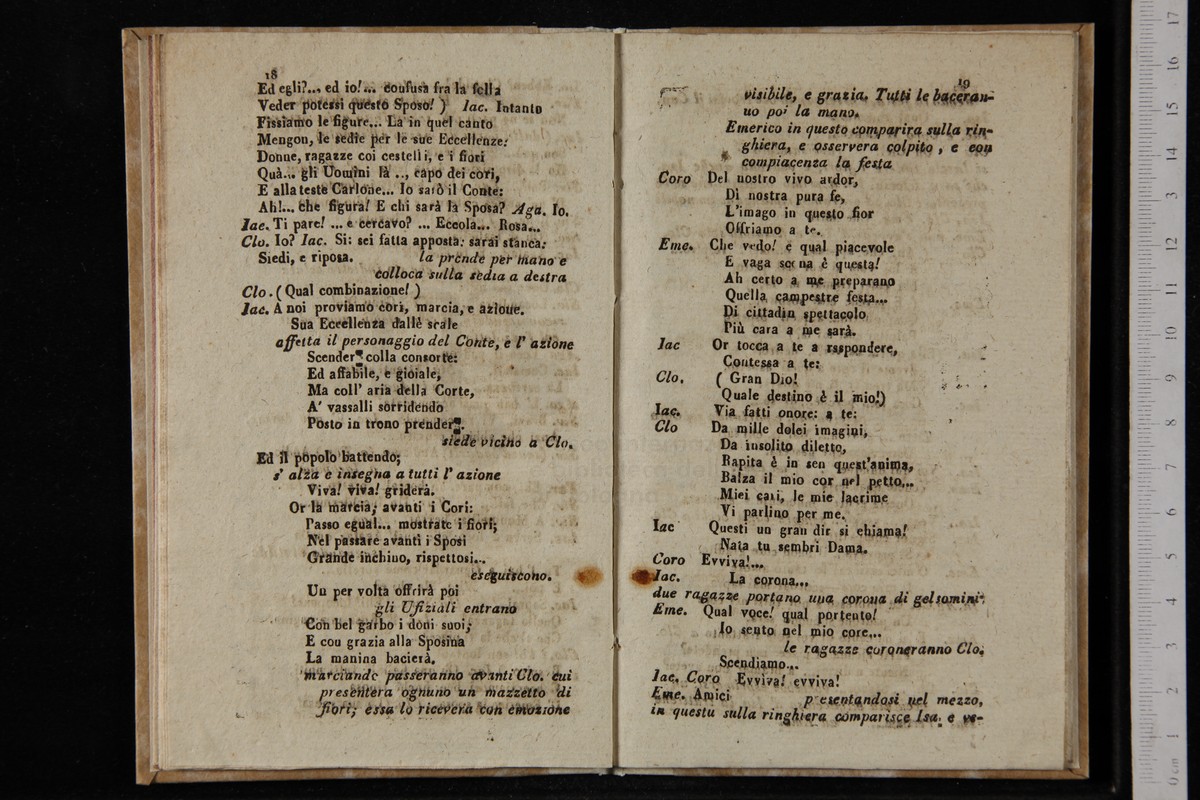 18
Ed egli?... ed io!... confusa fra la folla
Veder potessi questo Sposo! ) Iac. Intanto
Fissiamo le figure... La in quel canto
Mengon, le sedie per le sue Eccellenze:
Donne, ragazze coi cestelli, e i fiori
Quà... gli Uomini là .., capo dei cori,
E alla teste Carlone... Io sarò il Conte:
Ah!... che figura! E chi sarà la Sposa? Aga. Io.
Iac. Ti pare! ... e cercavo? ... Eccola... Rosa...
Clo. Io? Iac. Si: sei fatta apposta: sarai stanca:
Siedi, e riposa. la prende per mano e
colloca sulla sedia a destra
Clo. ( Qual combinazione! )
Iac. A noi proviamo cori, marcia, e azione.
Sua Eccellenza dalle scale
affetta il personaggio del Conte, e l' azione
Scenderà colla consorte:
Ed affabile, e gioiale,
Ma coll' aria della Corte,
A' vassalli sorridendo
Posto in trono prenderà.
siede vicino a Clo.
Ed il popolo battendo;
s' alza e insegna a tutti l' azione
Viva! viva! griderà.
Or la marcia; avanti i Cori:
Passo egual... mostrate i fiori;
Nel passare avanti i Sposi
Grande inchino, rispettosi...
eseguiscono.
Un per volta offrirà poi
gli Ufiziali entrano
Con bel garbo i doni suoi;
E con grazia alla Sposina
La manina bacierà.
marciando passeranno avanti Clo. cui
presentera ognuno un mazzetto di
fiori; essa lo riceverà con emozione
19
visibile, e grazia. Tutti le baceran-
no poi la mano.
Emerico in questo comparira sulla rin-
ghiera, e osserverà colpito , e con
compiacenza la festa
Coro Del nostro vivo ardor,
Di nostra pura fe,
L'imago in questo fior
Offriamo a te.
Eme. Che vedo! e qual piacevole
E vaga scena è questa!
Ah certo a me preparano
Quella campestre festa...
Di cittadin spettacolo
Più cara a me sarà.
Iac Or tocca a te a rsspondere,
Contessa a te:
Clo. ( Gran Dio!
Quale destino è il mio!)
Iac. Via fatti onore: a te:
Clo Da mille dolci imagini,
Da insolito diletto,
Rapita è in sen quest'anima,
Balza il mio cor nel petto...
Miei cari, le mie lacrime
Vi parlino per me.
Iac Questi un gran dir si chiama!
Nata tu sembri Dama.
Coro Evviva!...
Iac. La corona...
due ragazze portano una corona di gelsomini.
Eme. Qual voce! qual portento!
Io sento nel mio core...
le ragazze coroneranno Clo.
Scendiamo...
Iac. Coro Evviva! evviva!
Eme. Amici presentandosi nel mezzo,
in questu sulla ringhiera comparisce Isa. e ve-